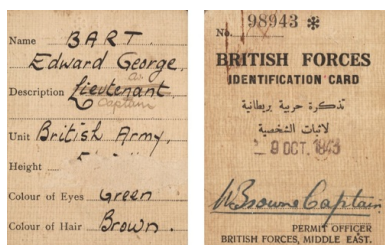 Name BART.
Edward George.
as
Description Lieutenant
Captain
Unit British Army.
Height
Colour of Eyes Green
Colour of Hair Brown.
No. 98943 ✻
BRITISH FORCES
IDENTIFICATION CARD
تذكرة حربية بريطانية
لاثبات الشخصية
9 OCT. 1943
W Browne Captain
PERMIT OFFICER
BRITISH FORCES, MIDDLE EAST.